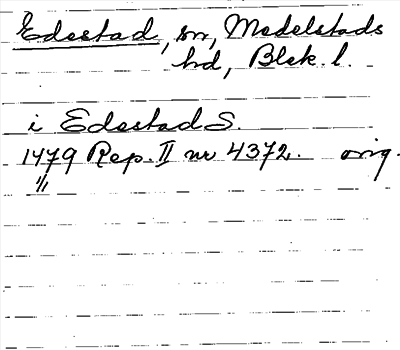 Edestad, sn, Medelstads
hd, Blek. l.
i Edestad S.
1479 Rep. II nr 4372. orig.
1/1